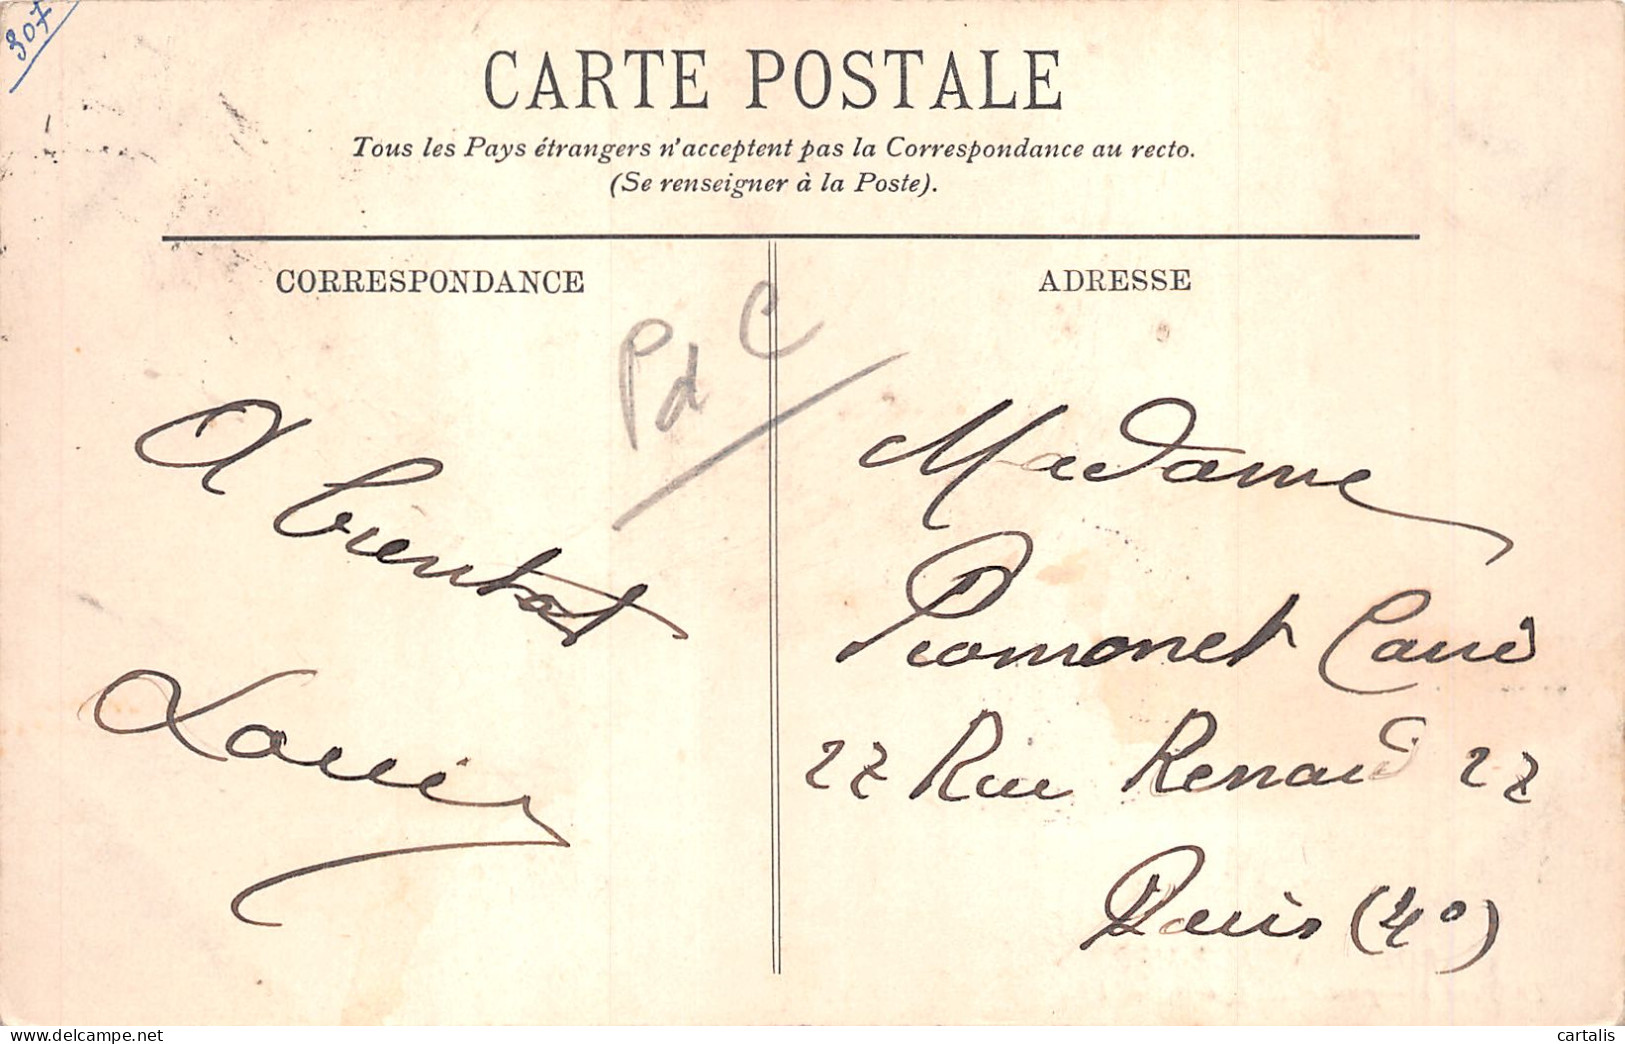 307
CARTE POSTALE
Tous les Pays étrangers n'acceptent pas la Correspondance au recto.
(Se renseigner à la Poste).
CORRESPONDANCE
PdC
A bientot
Louis
ADRESSE
Madame
22 Rue Renard 22
Paris (4°)
delcampe.net
cartalis